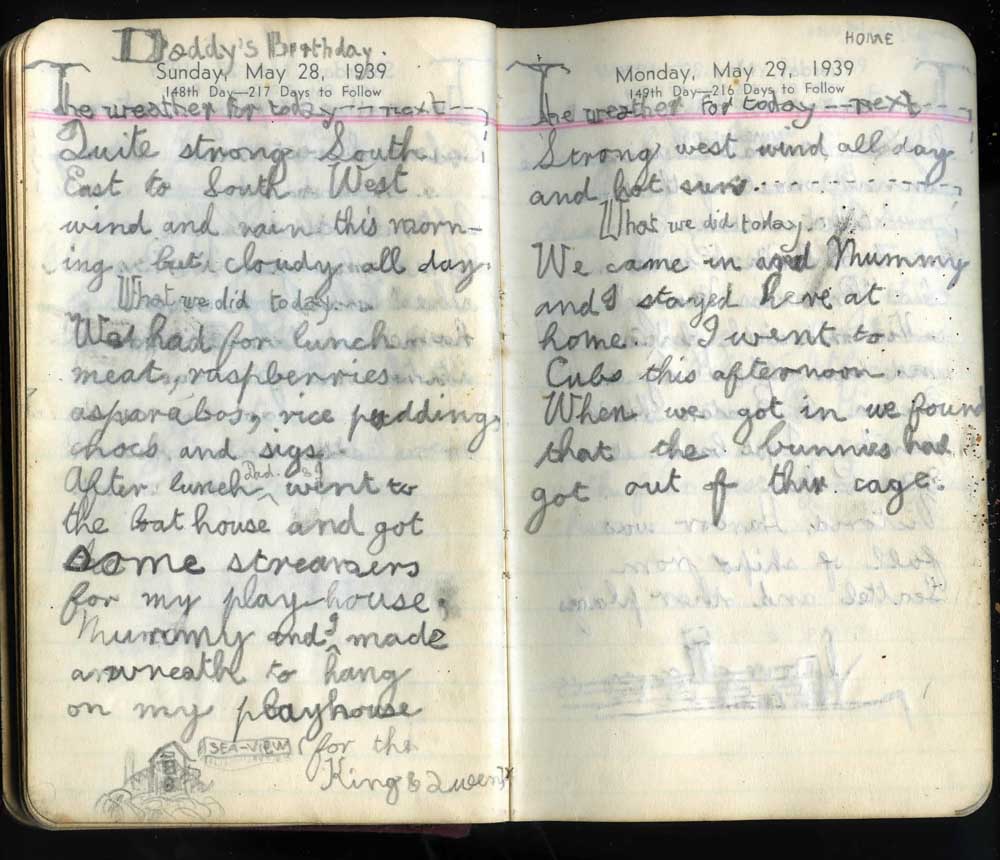 Daddy's Birthday.
Sunday, May 28, 1939
148th Day—217 Days to Follow
The weather for today --- next --
Quite strong South
East to South West
wind and rain this morn-
ing but cloudy all day.
What we did today...
We had for lunch
meat, raspberries
asparabos, rice pudding
chocs and sigs.
After lunch Dad & I went to
the boat house and got
some streamers
for my play-house,
Mummy and I made
a wreath to hang
on my playhouse
SEA-VIEW (for the
King & Queen)
HOME
Monday, May 29, 1939
149th Day—216 Days to Follow
The weather for today --- next --
Strong west wind all day
and hot sun.
What we did today.
We came in and Mummy
and I stayed here at
home. I went to
Cubs this afternoon.
When we got in we found
that the bunnies had
got out of thir cage.